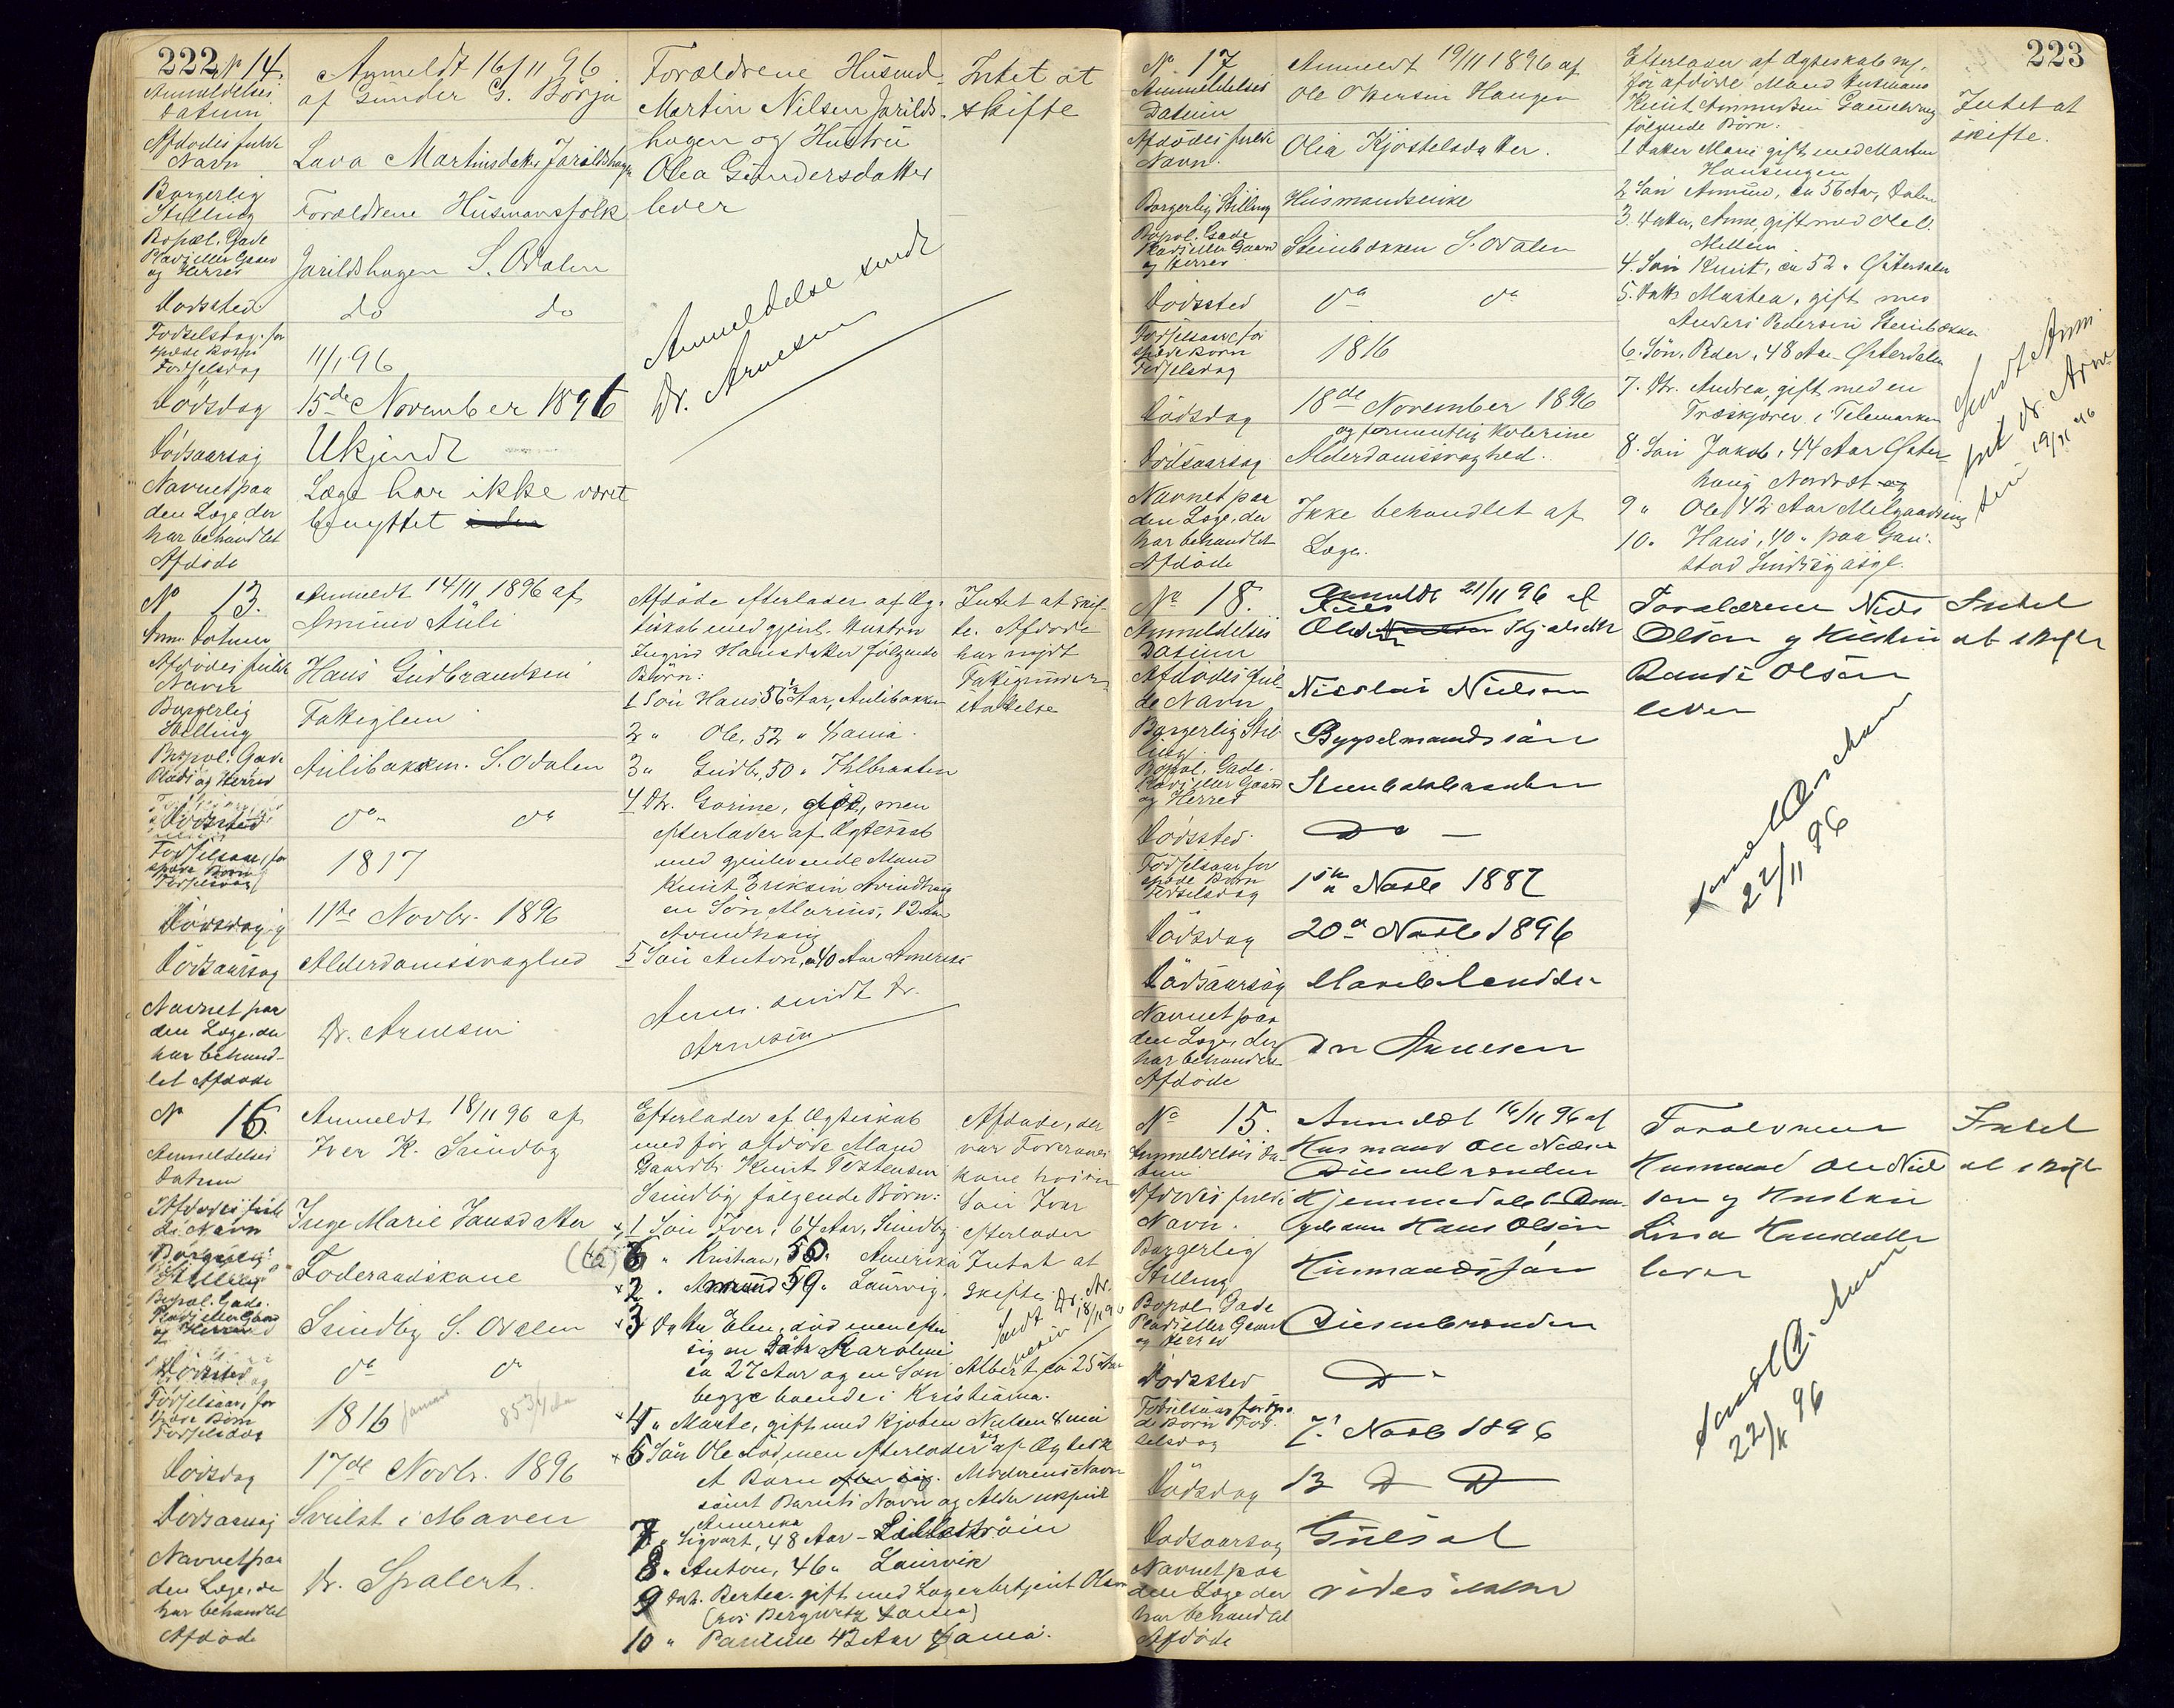 222
No 14.
Anmeldelses
Datum
Anmeldt 16/11 96
af Gunder G. Börja
Afdødes fulde
Navn
Lava Martinsdatter Jarildshagen
Borgerlig
Stilling
Forældrene Husmansfolk
Bopæl. Gade
Plads eller Gaard
og Herred
Jarildshagen S. Odalen
Dødssted
do do
Fødselsdag for
spæde Børn
Fødselsdag
11/1 96
Dødsdag
15de November 1896
Dødsaarsag
Ukjendt
Navnet paa
den Læge, der
har behandlet
Afdøde
Læge har ikke været
benyttet
Forældrene Husmd.
Martin Nilsen Jarilds-
hagen og Hustru
Olea Gundersdatter
lever
Intet at
skifte
Anmeldelse sendt
Dr. Arnesen
No 13.
Anm. Datum
Anmeldt 14/11 1896 af
Amund Auli
Afdødes fulde
Navn
Hans Gudbrandsen
Borgerlig
Stilling
Fattiglem
Bopæl. Gade
Plads og Herred
Aulibakken. S. Odalen
Dødssted
do do
Fødselsaar, for
spæde Børn
Fødselsdag
1817
Dødsdag
11te Novbr. 1896
Dødsaarsag
Alderdomssvaghed
Navnet paa
den Læge, der
har behand-
let Afdøde
Dr. Arnesen
Afdøde efterlader af Æg-
teskab med gjenl. Hustru
Ingrid Hansdatter følgende
Børn:
1 Søn Hans 56 Aar, Aulibakken
2 " Ole, 52 " Hama
3 " Gudbr, 50 "
4 Dtr. Gorine, død, men
efterlader af Ægteskab
med gjenlevende Mand
Knut Eriksen
en Søn Marius, 12 Aar
5 Søn Anton, 40 Aar Amerika
Intet at skif-
te. Afdøde
har nydt
Fattigunder-
støttelse
Anm. sendt Dr.
Arnesen
No 16.
Anmeldelses
Datum
Anmeldt 18/11 96 af
Iver K. Sundby
Afdødes ful-
de Navn
Inge Marie Hansdatter
Borgerlig
Stilling
Foderaadskone
Bopæl. Gade.
Plads eller Gaard
og Herred
Sundby S. Odalen
Dødssted
do do
Fødselsaar, for
spæde Børn
Fødselsdag
1816 januar 85 3/4 Aar
Dødsdag
17de Novbr. 1896
Dødsaarsag
Svulst i Maven
Navnet paa
den Læge, der
har behandlet
Afdøde
Dr. Spalert.
Efterlader af Ægteskab
med før afdøde Mand
Gaardbr. Knut Torstensen
Sundby følgende Børn:
1 Søn Iver, 64 Aar, Sundby
6 " Kristian, 50 " Amerika
2 " Amund 59 " Laurvig.
3 Datter Elen, død men efter
sig en Datter Karoline
ca 27 Aar og en Søn Albert, ca 25 Aar
begge boende i Kristiania.
4 " Marte, gift med Kjøbm Nielsen Hama
5 Søn Ole død, men efterlader sig af Ægtesk
et Barn efter sig. Moderens Navn
samt Barnets Navn og Alder ukjent
Amerika
7 " Sigvart, 48 Aar - Lillestrøm
8 " Anton, 46 " Laurvik
9 Datt. Bertea. gift med Lagerbetjent Olsen
10 " Pauline 43 Aar Hama.
Afdøde, der
var Foderaads-
kone hos sin
Søn Iver
efterlader
Intet at
skifte.
Sendt Dr. Ar-
nesen 18/11 96
223
No 17
Anmeldelses
Datum
Anmeldt 19/11 1896 af
Ole Olsersen Haugen
Afdødes fulde
Navn.
Olia Kjøstelsdatter.
Borgerlig Stilling
Husmandsenke
Bopæl. Gade
Plads eller Gaard
og Herred
Stenbækken S. Odalen
Dødssted
do do
Fødselsaar for
spæde Børn
Fødselsdag
1816
Dødsdag
18de November 1896
Dødsaarsag
og formentlig Kolerine
Alderdomssvaghed.
Navnet paa
den Læge, der
har behandlet
Afdøde
Ikke behandlet af
Læge.
Efterlader af Ægteskab m/
før afdøde Mand Husmand
Knut Amundsen
følgende Børn.
1 Datter Marie gift med Martin
2 Søn Amund, ca 56 Aar, Dalen
3. Datter, Anne, gift med Ole O.
Mellem
4. Søn Knut, ca 52 " Østerdalen
5. Datter Martea, gift med
Anders Pedersen Stenbækken
6. Søn, Peder, 48 Aar - Østerdalen
7. Dtr. Andrea, gift med en
Træskjærer i Telemarken
8. Søn Jakob, 44 Aar Øster-
haug
9 " Ole, 42 Aar
10. " Hans, 40 " paa Gau-
stad Sindssygeasyl.
Intet at
skifte.
Sendt Anm.
til Dr. Arne-
sen 19/11 96
No 18.
Anmeldelses
Datum
Anmeldt 21/11 96 af
Nils
Olsen
Afdødes ful-
de Navn
Nicolai Nielsen
Borgerlig Stil-
ling
Bygselmandssøn
Bopæl. Gade.
Plads eller Gaard
og Herred
Dødssted.
Do
Fødselsaar for
spæde Børn
Fødselsdag
1ste Novbr 1887
Dødsdag
20de Novbr 1896
Dødsaarsag
Navnet paa
den Læge, der
har behandlet
Afdøde
Dr Arnesen
Forældrene Nils
Olsen og Hustru
Randi Olsen
lever
Intet
at skifte
22/11 96
No 15.
Anmeldelses Da-
tum
Anmeldt 16/11 96 af
Husmand Ole Nielsen
Afdødes fulde
Navn.
Hjemmedøbt Dren-
gebarn Hans Olsen
Borgerlig
Stilling
Husmandssøn
Bopæl. Gade
Plads eller Gaard
og Herred
Dødssted
Do
Fødselsaar for spæ-
de Børn Fød-
selsdag
7' Novb 1896
Dødsdag
13 D D
Dødsaarsag
Gulsot
Navnet paa
den Læge der
har behandlet
Afdøde
vides ikke
Forældrene
Husmand Ole Niel
sen og Hustru
Lina Hansdatter
lever
Intet
at skifte
22/11 96